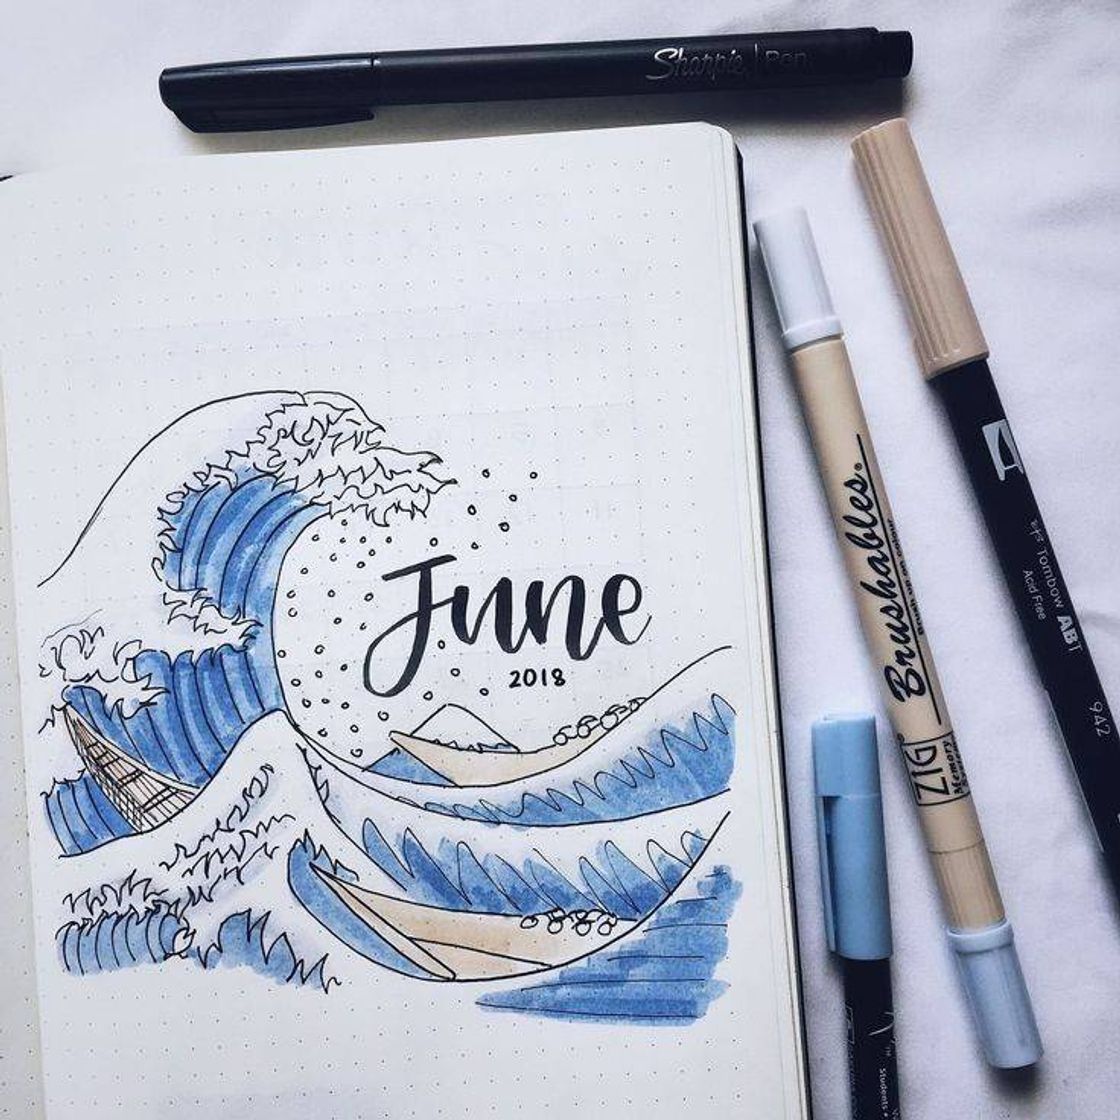 Sharpie | Pen
June
2018
Brushables.
ZIG
Memory
Tombow ABT
Acid Free
942
Students